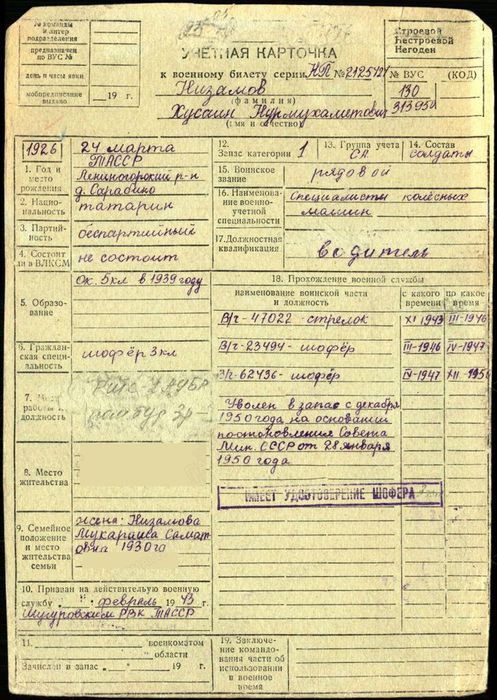 № команды
и литер
подразделения
предназначен
по ВУС №
день и часы явки
мобпредписание
выдано 19 г.
УЧЕТНАЯ КАРТОЧКА
к военному билету серии НП № 2125424
Низамов
(фамилия)
Хусаин Нурмухаметович
(имя и отчество)
Строевой
Нестроевой
Негоден
№ ВУС (КОД)
130
313950
1926 24 марта
ТАССР
1. Год и место рождения
Лениногорский р-н
д. Сарабино
2. Национальность татарин
3. Партийность беспартийный
4. Состоит ли в ВЛКСМ не состоит
5. Образование
Ок. 5кл в 1939 году
6. Гражданская специальность шофёр 3кл
7. работы и должность
8. Место жительства
9. Семейное положение и место жительства семьи
жена: Низамова
1930 го
10. Призван на действительную военную
службу " " февраль 1943 г.
РВК ТАССР
11. военкоматом
области
Зачислен в запас " " 19 г.
12. Запас категории 1
13. Группа учета СА
14. Состав солдаты
15. Воинское звание рядовой
16. Наименование военно-учетной специальности
Специалисты колёсных
машин
17. Должностная квалификация водитель
18. Прохождение военной службы
наименование воинской части и должность
с какого времени
по какое время
В/ч-47022-стрелок XI 1943 III-1946
В/ч-23494-шофёр III-1946 IV-1947
В/ч-62436-шофёр IV-1947 XII 195
Уволен в запас с декабря
1950 года на основании
постановления Совета
Мин. СССР от 28 января
1950 года
ИМЕЕТ УДОСТОВЕРЕНИЕ ШОФЕРА
19. Заключение командования части об использовании в военное время